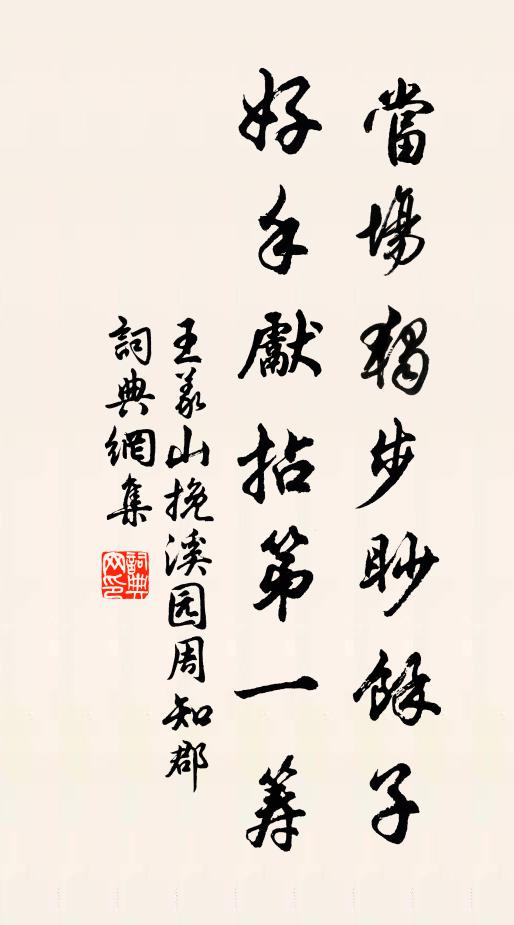 當場獨步眇餘子
好手獻拈第一筹
王義山挽溪园周知郡
詞典網集
詞典網印